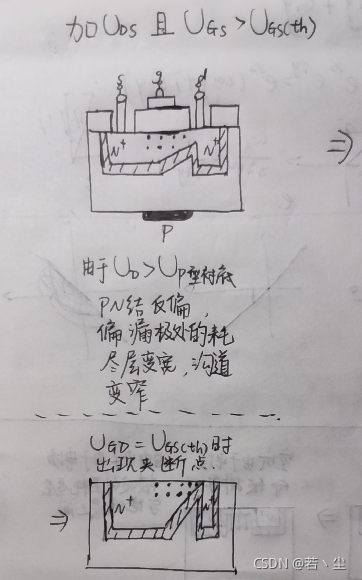 加 UDS 且 UGS > UGS(th)
s g d
N+ N+
⇒
P
由于 UD > UP型衬底
PN结反偏，
偏漏极处的耗
尽层变宽，沟道
变窄
UGD = UGS(th) 时
出现夹断点
⇒ N+ N+
CSDN @若丶尘